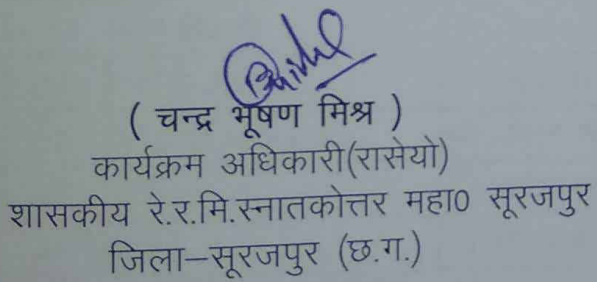 ( चन्द्र भूषण मिश्र )
कार्यक्रम अधिकारी(रासेयो)
शासकीय रे.र.मि.स्नातकोत्तर महा0 सूरजपुर
जिला–सूरजपुर (छ.ग.)